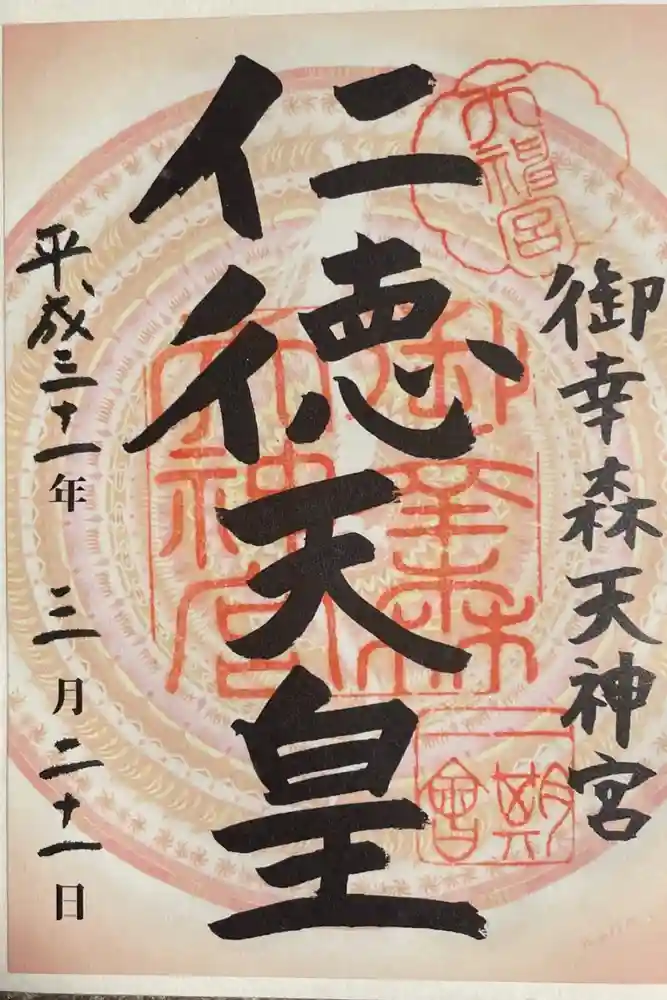 御幸森天神宮
仁徳天皇
平成三十一年 三月二十一日
天神宮
御幸森
天神宮
一期
一會